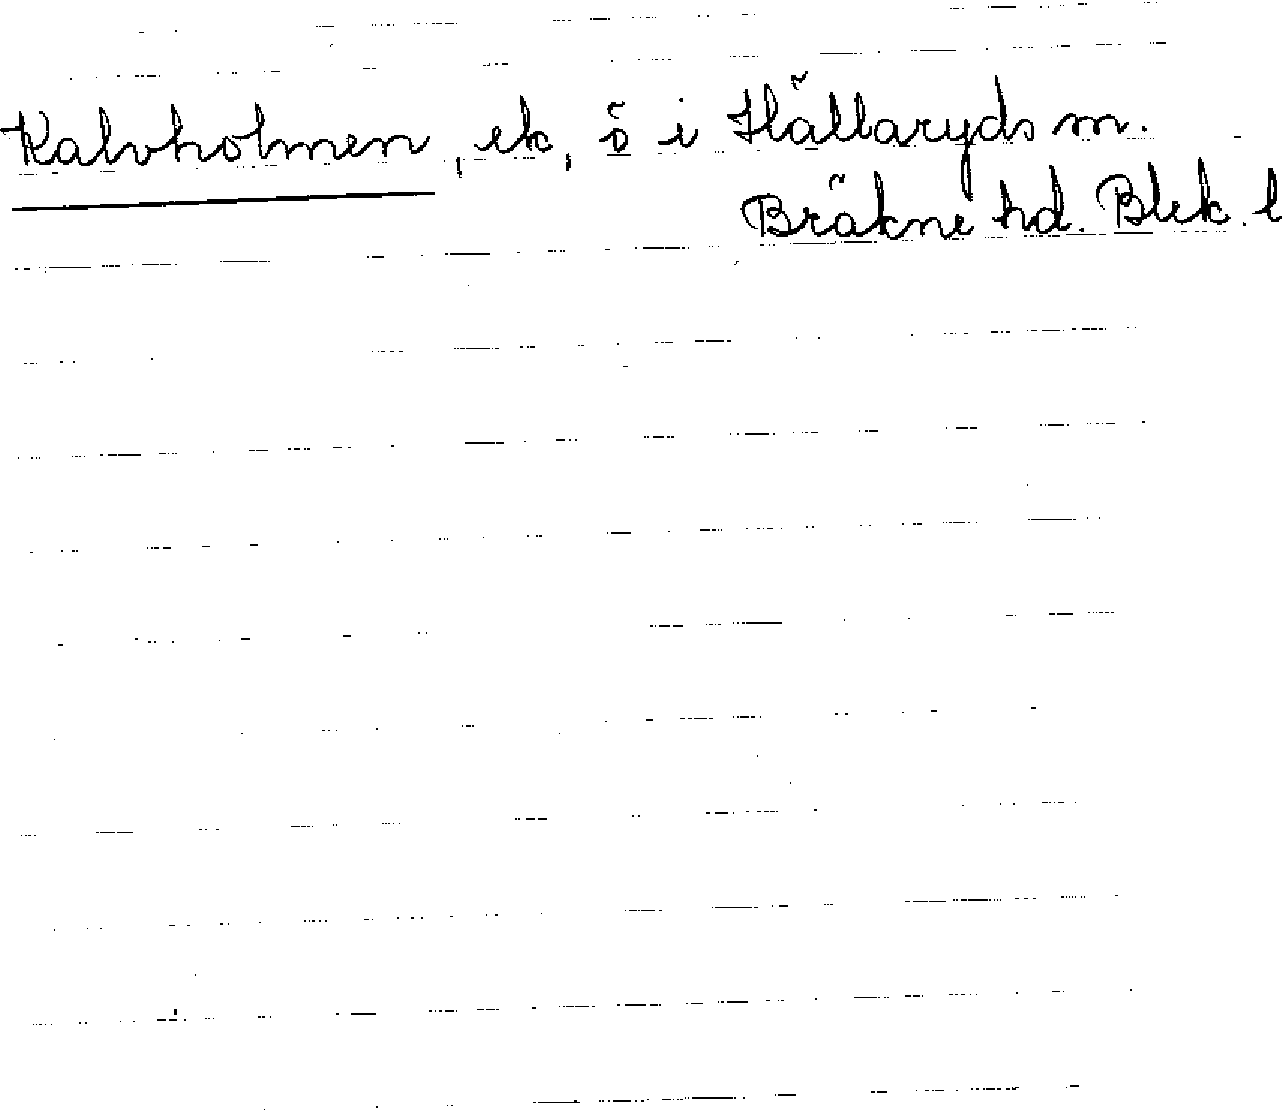 Kalvholmen, ek, ö i Hällaryds sn.
Bräkne hd. Blek. l